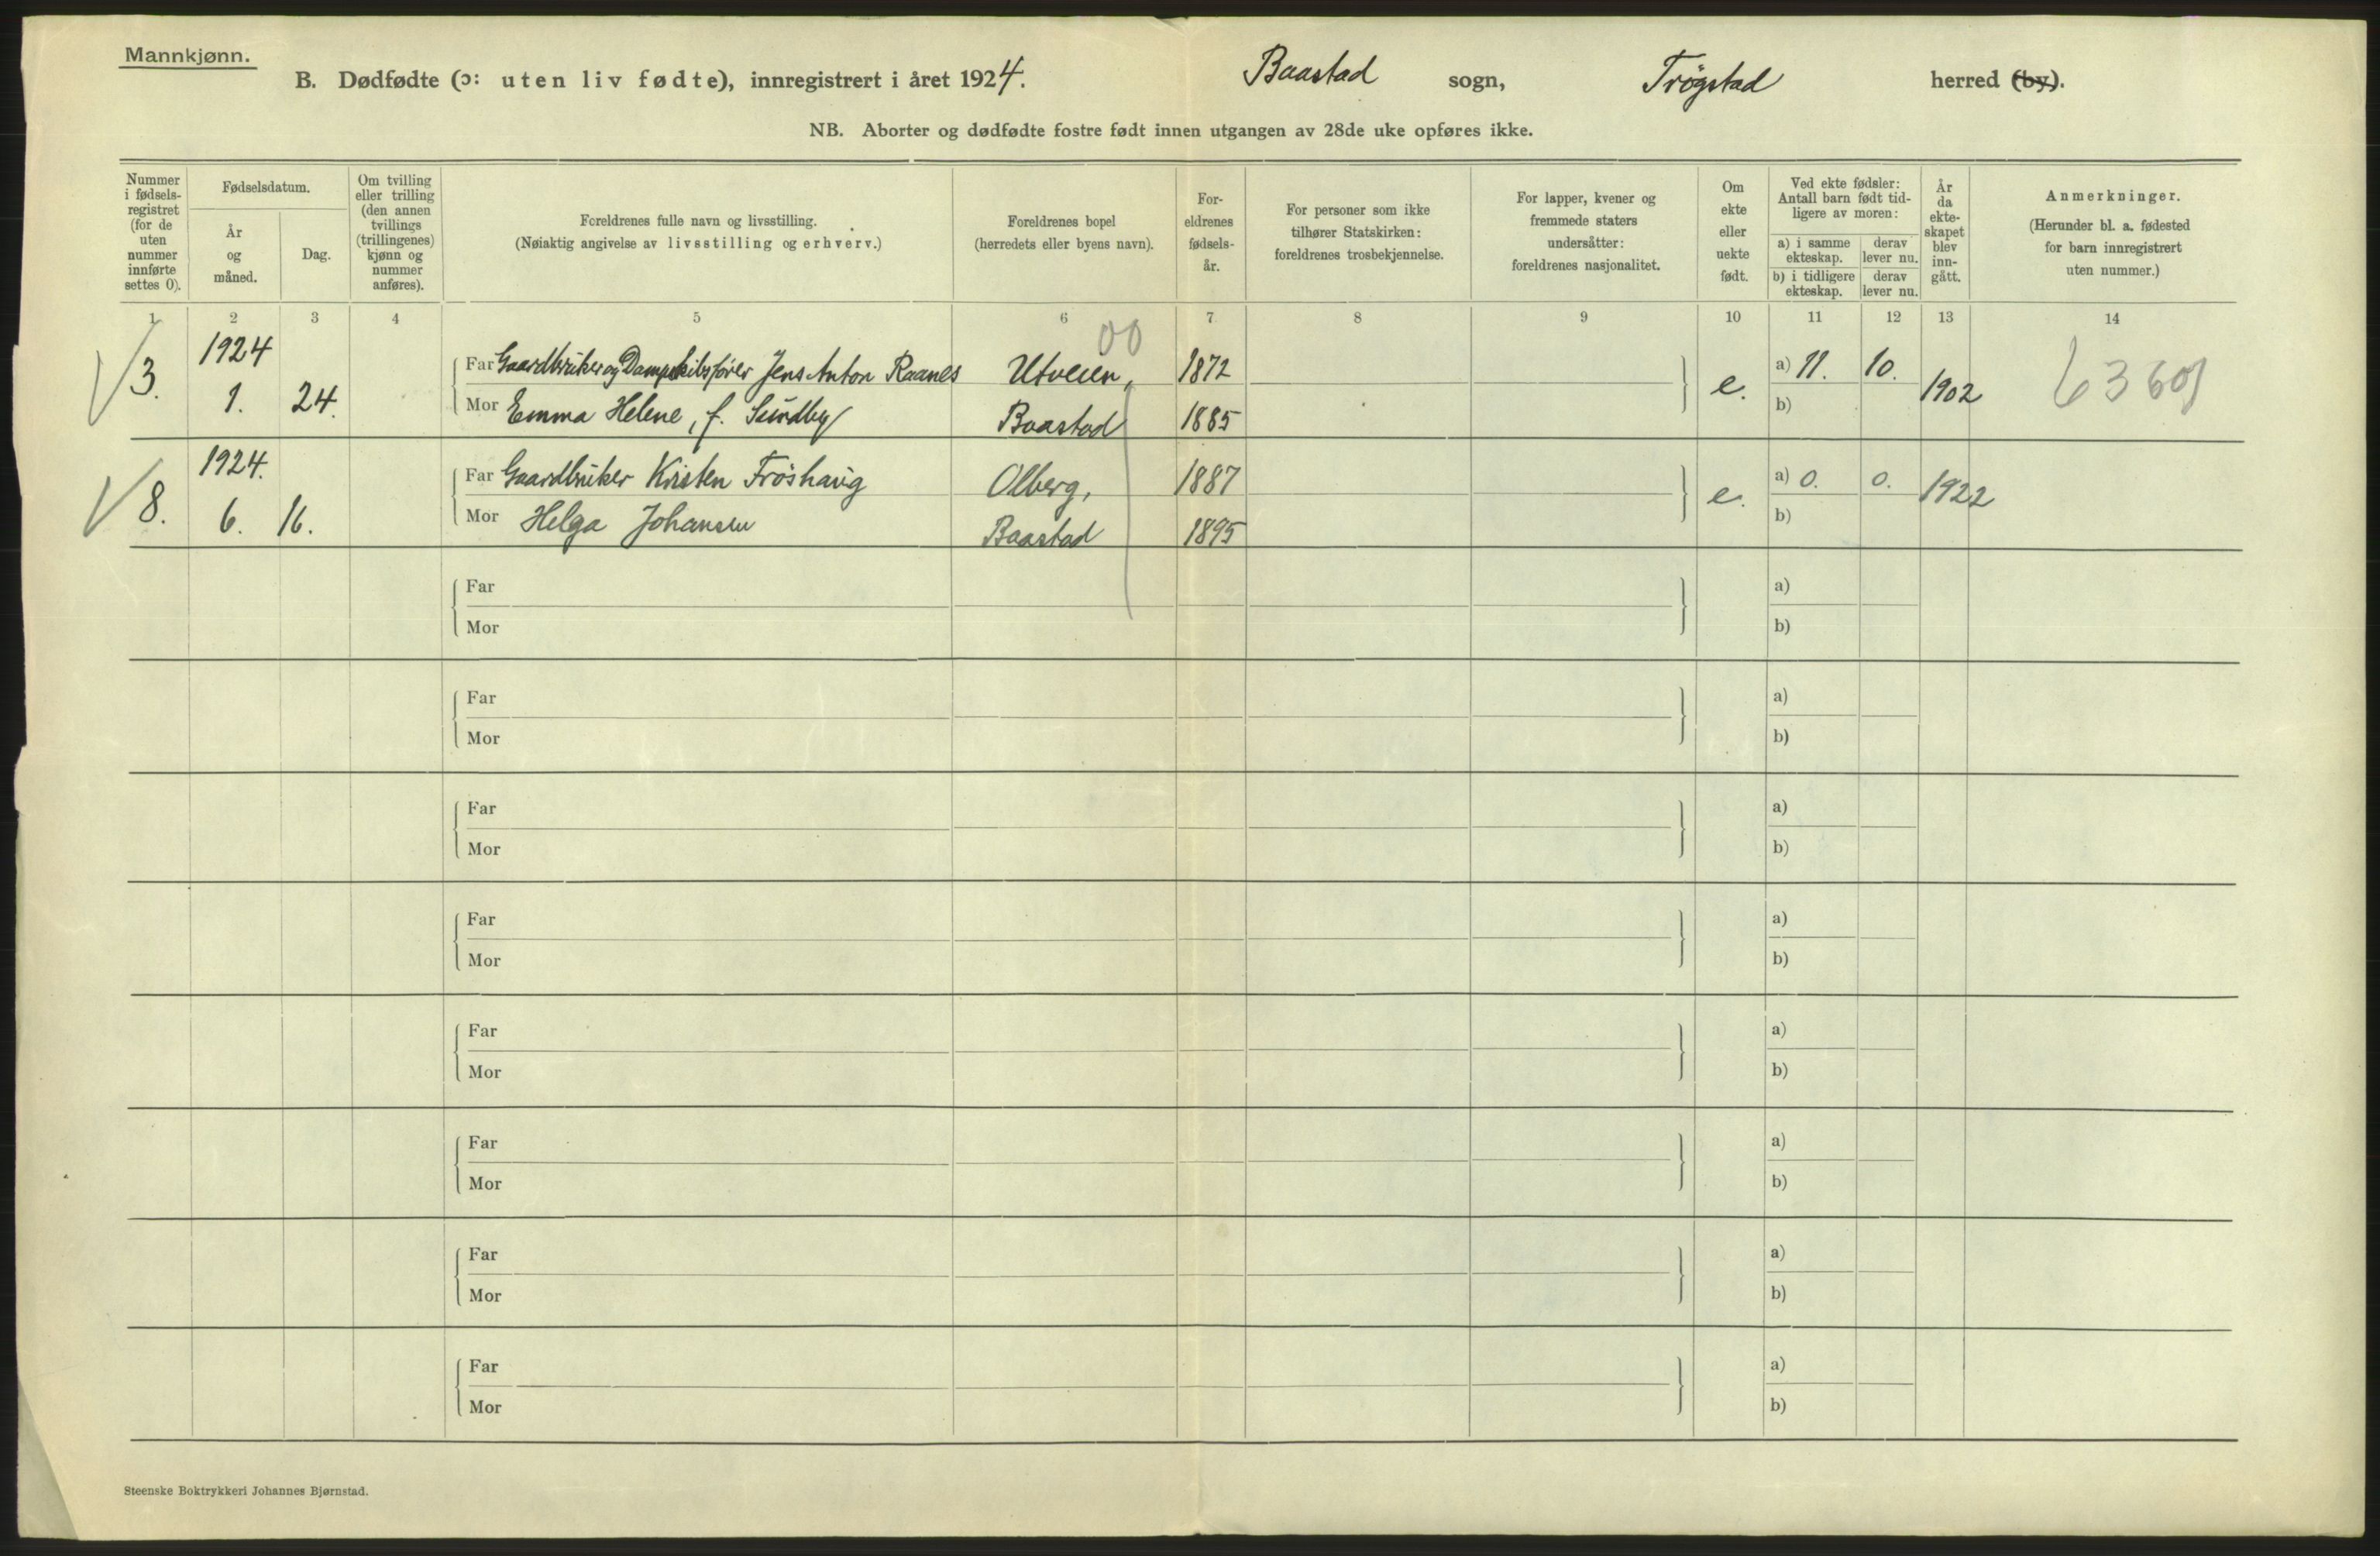 Mannkjønn.
B. Dødfødte (ɔ: uten liv fødte), innregistrert i året 1924. Baastad sogn, Trøgstad herred (by).
NB. Aborter og dødfødte fostre født innen utgangen av 28de uke opføres ikke.
Nummer i fødsels-registret (for de uten nummer innførte settes 0).
Fødselsdatum.
År og måned.
Dag.
Om tvilling eller trilling (den annen tvillings (trillingenes) kjønn og nummer anføres).
Foreldrenes fulle navn og livsstilling.
(Nøiaktig angivelse av livsstilling og erhverv.)
Foreldrenes bopel
(herredets eller byens navn).
For-eldrenes fødsels-år.
For personer som ikke tilhører Statskirken: foreldrenes trosbekjennelse.
For lapper, kvener og fremmede staters undersåtter: foreldrenes nasjonalitet.
Om ekte eller uekte født.
Ved ekte fødsler: Antall barn født tid-ligere av moren:
a) i samme ekteskap. derav lever nu.
b) i tidligere ekteskap. derav lever nu.
År da ekte-skapet blev inn-gått.
Anmerkninger.
(Herunder bl. a. fødested for barn innregistrert uten nummer.)
1 2 3 4 5 6 7 8 9 10 11 12 13 14
00
3. 1924 1. 24.
Far Gaardbruker og Dampskibsfører Jens Anton Raanes Utveien, 1872 e. a) 11. 10. 1902 6360
Mor Emma Helene, f. Sundby Baastad 1885 b)
8. 1924. 6. 16.
Far Gaardbruker Kristen Frøshaug Olberg, 1887 e. a) 0. 0. 1922
Mor Helga Johansen Baastad 1895 b)
Far a)
Mor b)
Far a)
Mor b)
Far a)
Mor b)
Far a)
Mor b)
Far a)
Mor b)
Far a)
Mor b)
Far a)
Mor b)
Far a)
Mor b)
Steenske Boktrykkeri Johannes Bjørnstad.